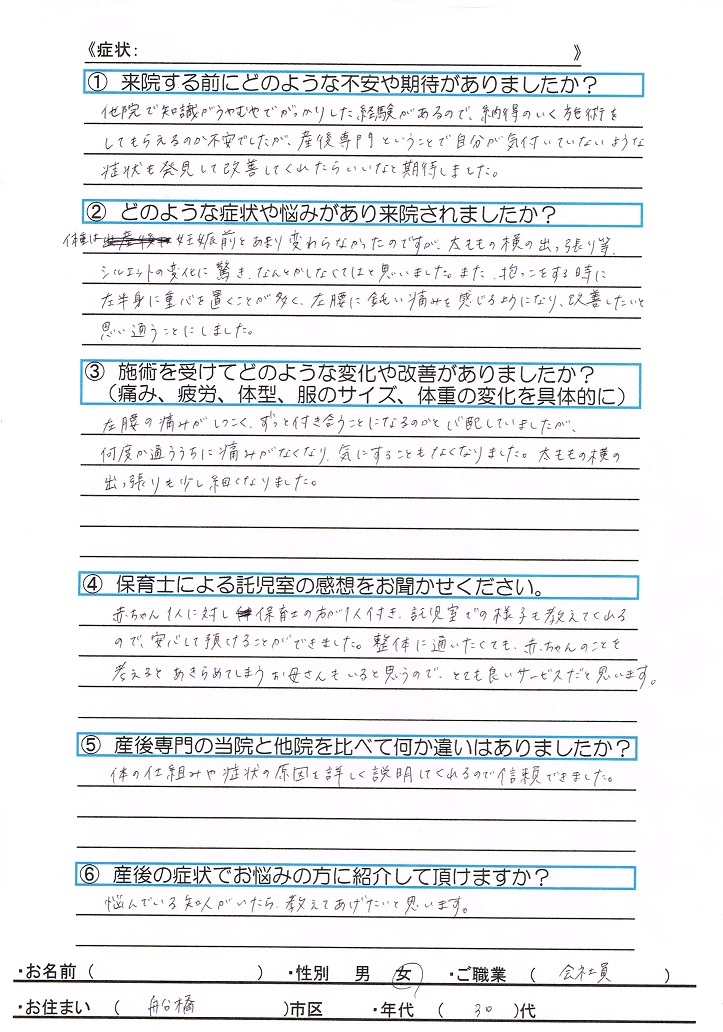 《症状： 》
① 来院する前にどのような不安や期待がありましたか？
他院で知識がうやむやでがっかりした経験があるので、納得のいく施術を
してもらえるのか不安でしたが、産後専門ということで自分が気付いていないような
症状も発見して改善してくれたらいいなと期待しました。
② どのような症状や悩みがあり来院されましたか？
体重は 妊娠前とあまり変わらなかったのですが、太ももの横の出っ張り等、
シルエットの変化に驚き、なんとかしなくてはと思いました。また、抱っこをする時に
左半身に重心を置くことが多く、左腰に鈍い痛みを感じるようになり、改善したいと
思い通うことにしました。
③ 施術を受けてどのような変化や改善がありましたか？
（痛み、疲労、体型、服のサイズ、体重の変化を具体的に）
左腰の痛みがしつこく、ずっと付き合うことになるのかと心配していましたが、
何度か通ううちに痛みがなくなり、気にすることもなくなりました。太ももの横の
出っ張りも少し細くなりました。
④ 保育士による託児室の感想をお聞かせください。
赤ちゃん1人に対し 保育士の方が1人付き、託児室での様子も教えてくれる
ので、安心して預けることができました。整体に通いたくても、赤ちゃんのことを
考えるとあきらめてしまうお母さんもいると思うので、とても良いサービスだと思います。
⑤ 産後専門の当院と他院を比べて何か違いはありましたか？
体の仕組みや症状の原因を詳しく説明してくれるので信頼できました。
⑥ 産後の症状でお悩みの方に紹介して頂けますか？
悩んでいる知人がいたら、教えてあげたいと思います。
・お名前（ ） ・性別 男 女 ・ご職業 （ 会社員 ）
・お住まい （ 船橋 ）市区 ・年代 （ 30 ）代